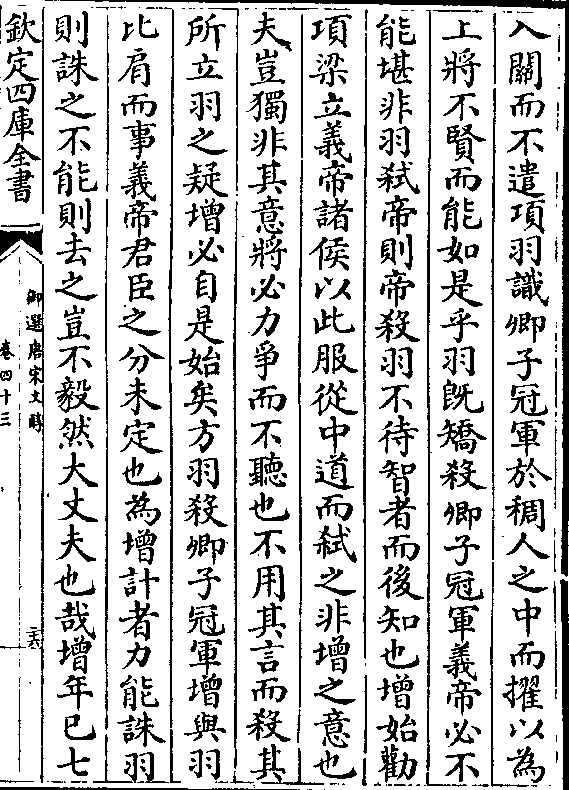 入關而不遣項羽識卿子冠軍於稠人之中而擢以為
上將不賢而能如是乎羽既矯殺卿子冠軍義帝必不
能堪非羽弑帝則帝殺羽不待智者而後知也增始勸
項梁立義帝諸侯以此服從中道而弑之非增之意也
夫豈獨非其意將必力爭而不聽也不用其言而殺其
所立羽之疑增必自是始矣方羽殺卿子冠軍增與羽
比肩而事義帝君臣之分未定也為增計者力能誅羽
則誅之不能則去之豈不毅然大丈夫也哉增年已七
欽定四庫全書
御選唐宋文醇
卷四十三